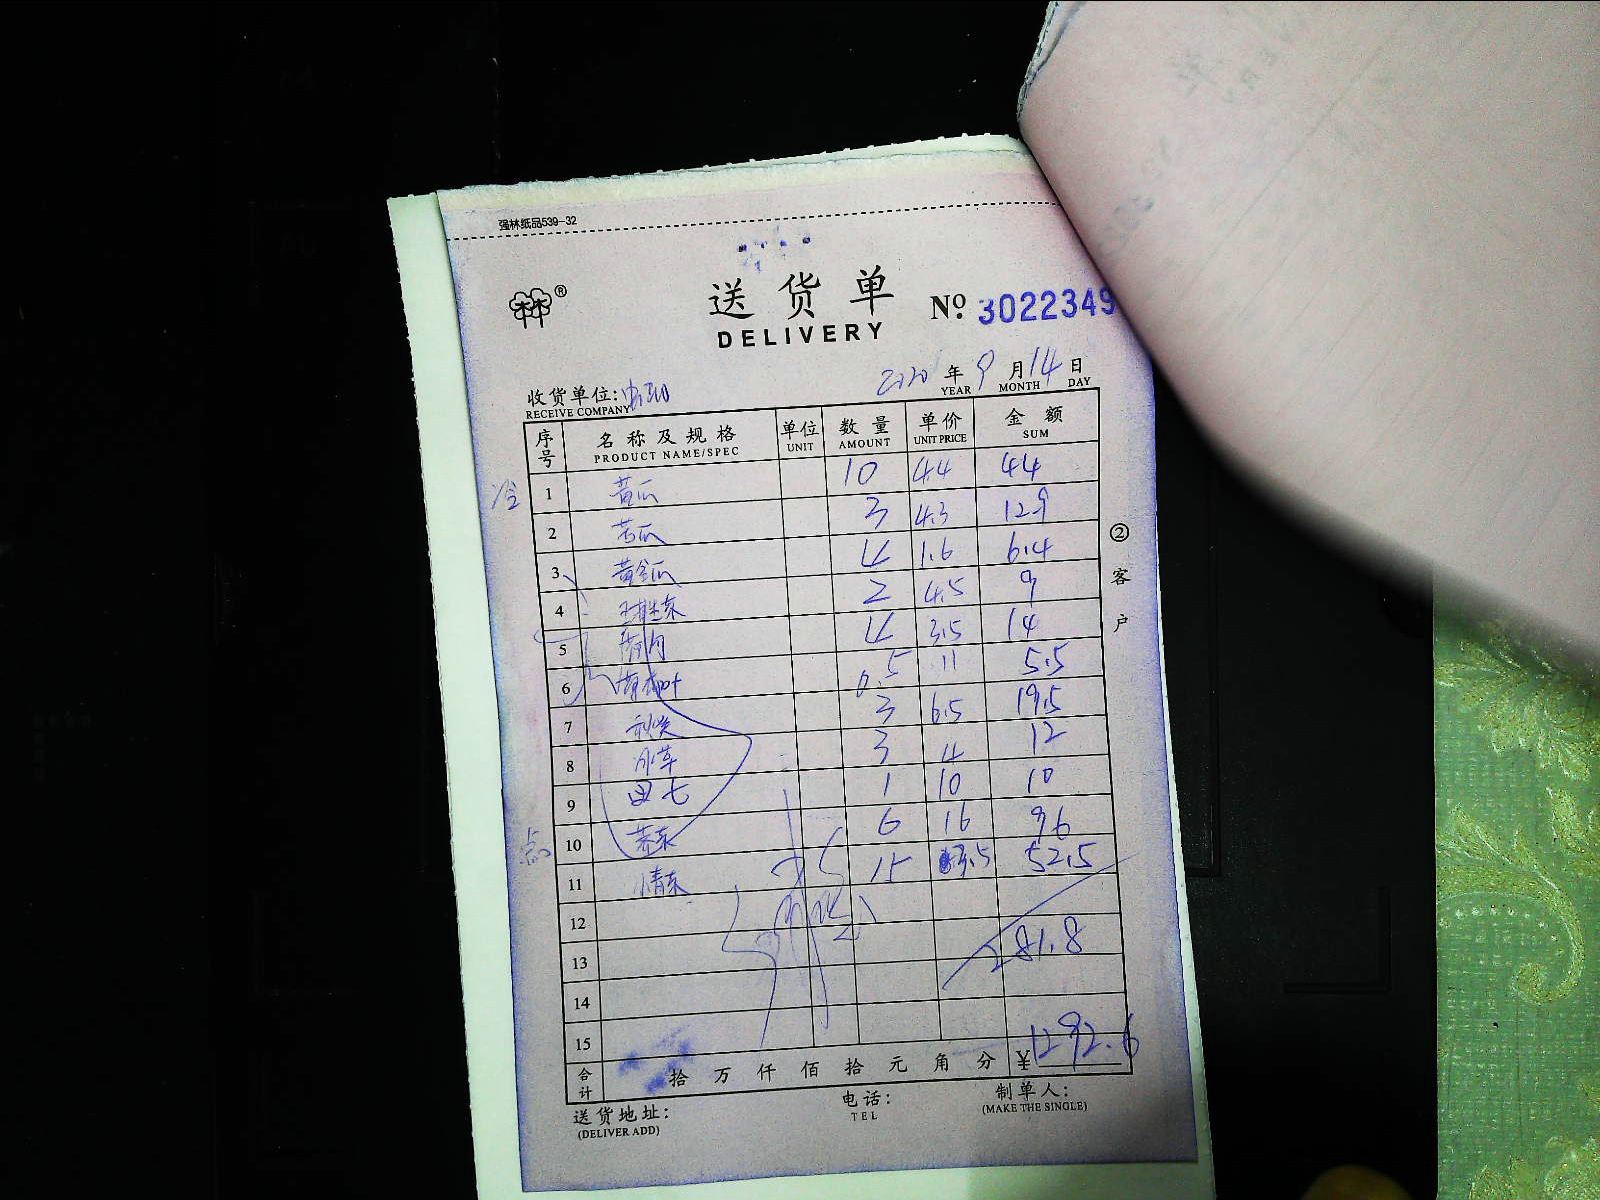 强林纸品539-32
送货单
DELIVERY
Nº 3022349
2020 年 9 月 14 日
YEAR MONTH DAY
收货单位:
RECEIVE COMPANY
序号 名称及规格 单位 数量 单价 金额
PRODUCT NAME/SPEC UNIT AMOUNT UNIT PRICE SUM
冷
1 黄瓜 10 4.4 44
2 苦瓜 3 4.3 12.9
3 黄金瓜 4 1.6 6.4
4 2 4.5 9
5 4 3.5 14
6 0.5 11 5.5
7 秋葵 3 6.5 19.5
8 冰草 3 4 12
9 田七 1 10 10
点
10 荠菜 6 16 96
11 小青菜 15 3.5 52.5
12
13 281.8
14
15
合计 拾 万 仟 佰 拾 元 角 分 ¥1292.6
②客户
送货地址: 电话: 制单人:
(DELIVER ADD) TEL (MAKE THE SINGLE)